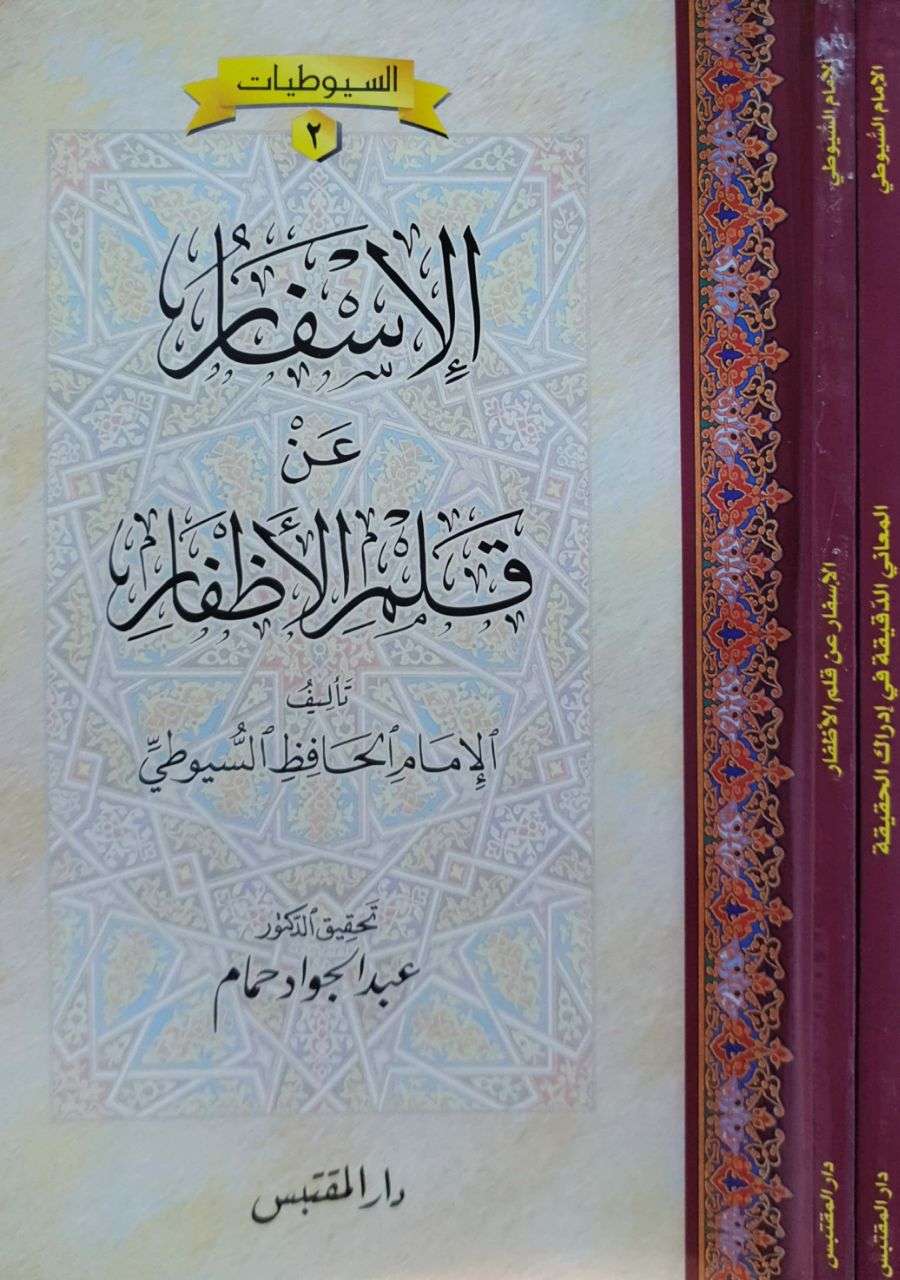 السيوطيات
٢
الإِسْفَارُ
عَنْ
قَلْمِ الأَظْفَارِ
تَأليفُ
الإِمَامِ الحَافِظِ السُّيوطيِّ
تحقيق الدكتور
عبد الجواد حمام
دار المقتبس
الإمام السُّيوطي
الإسفار عن قلم الأظفار
دار المقتبس
الإمام السُّيوطي
المعاني الدقيقة في إدراك الحقيقة
دار المقتبس